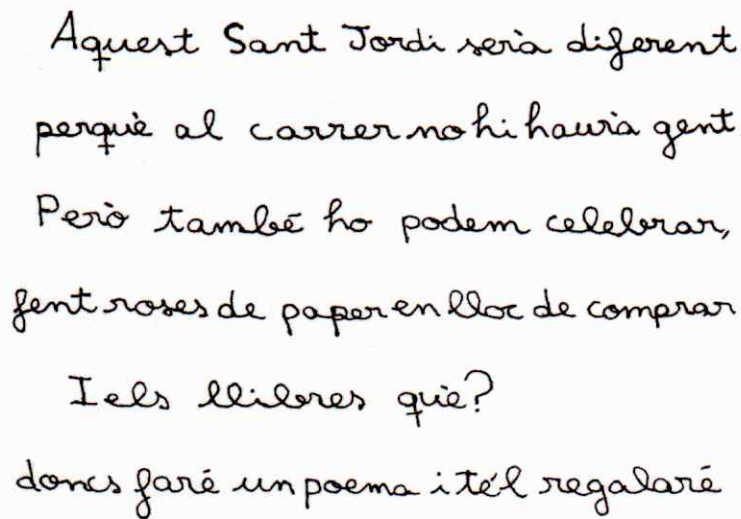 Aquest Sant Jordi serà diferent
perquè al carrer no hi haurà gent
Però també ho podem celebrar,
fent roses de paper en lloc de comprar
I els llibres què?
doncs faré un poema i te'l regalaré